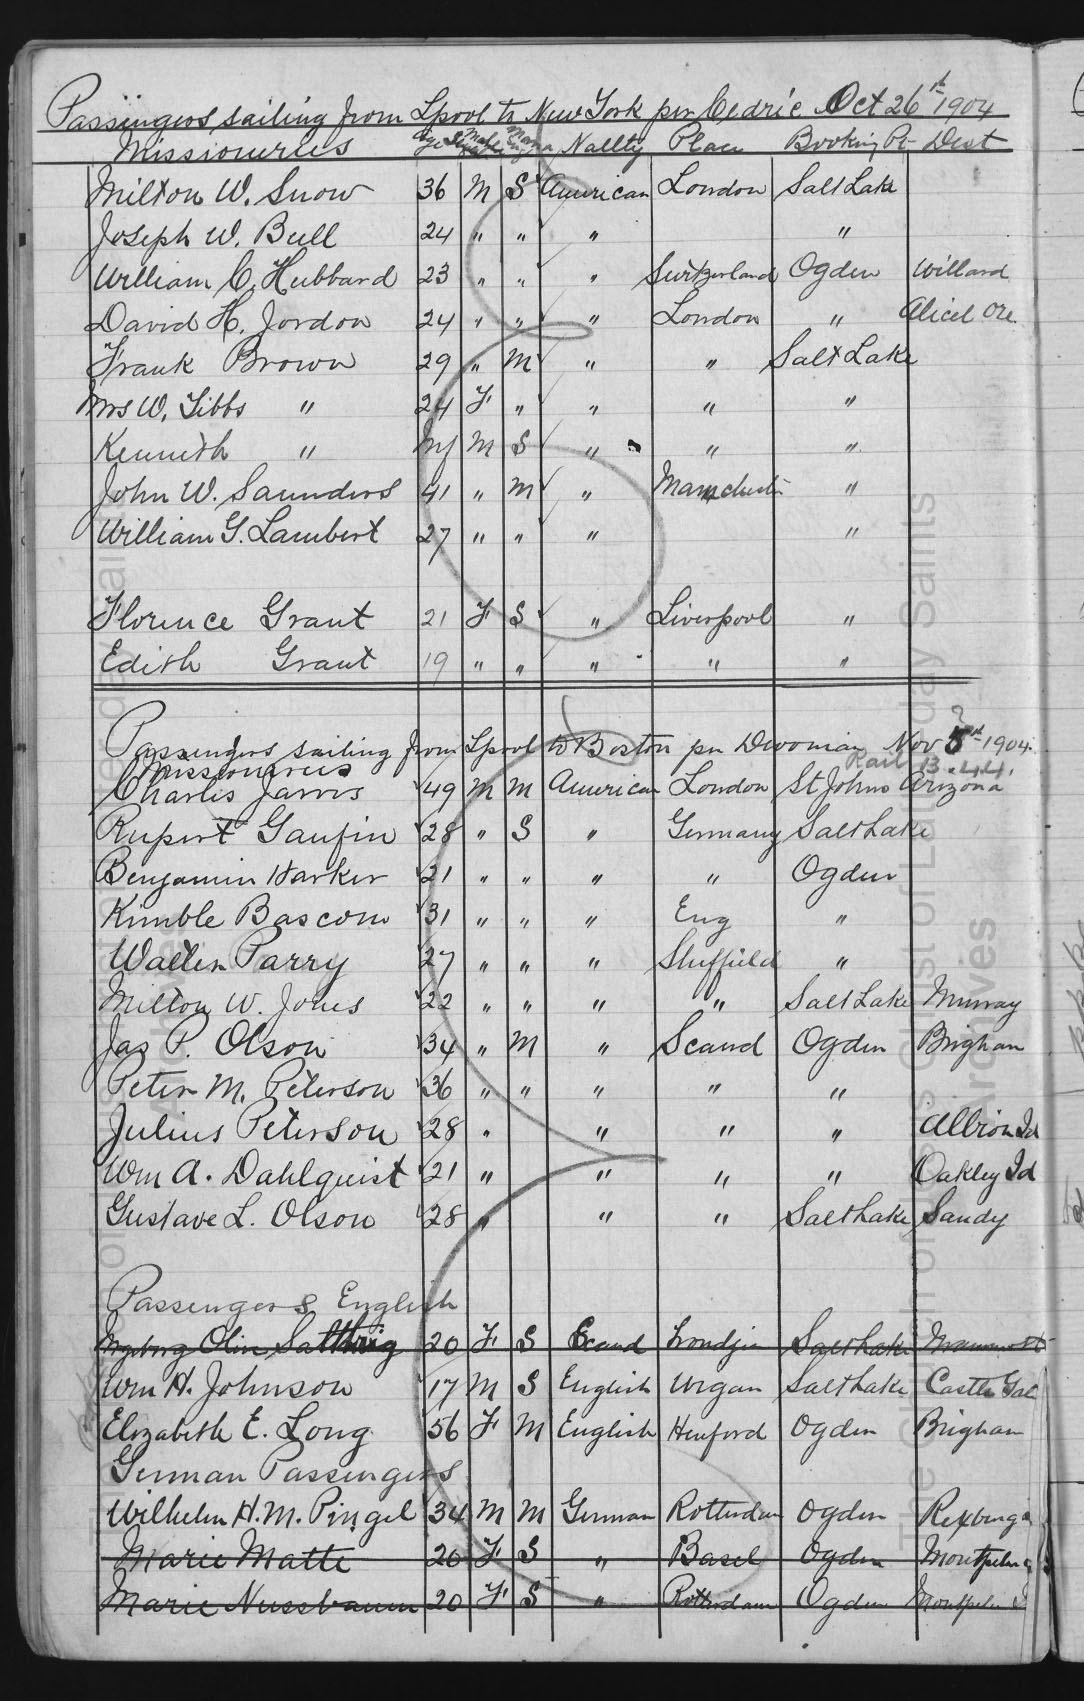 Passengers sailing from Lpool to New York per Cedric Oct 26th 1904
Missionaries Age Male Nallty Place Booking Pt Dest
Milton W. Snow 36 M S American London Salt Lake
Joseph W. Bull 24 " " " "
William C. Hubbard 23 " " " Switzerland Ogden Willard
David H. Jordon 24 " " " London " Alicel Ore.
Frank Brown 29 " M " " Salt Lake
Mrs W. Tibbs " 24 F " " " "
Kenneth " Inf M S " " "
John W. Saunders 41 " M " Manchester "
William G. Lambert 27 " " " "
Florence Grant 21 F S " Liverpool "
Edith Grant 19 " " " " "
Passengers sailing from Lpool to Boston per Devonian Nov 5th 1904.
Missionaries Rail 13.44.
Charles Jarvis 49 M M American London St Johns Arizona
Rupert Gaufin 28 " S " Germany Salt Lake
Benjamin Harker 21 " " " " Ogden
Kimble Bascom 31 " " " Eng "
Walter Parry 27 " " " Sheffield "
Milton W. Jones 22 " " " " Salt Lake Murray
Jas P. Olson 34 " M " Scand Ogden Brigham
Peter M. Peterson 36 " " " " "
Julius Peterson 28 " " " " Albion Id
Wm A. Dahlquist 21 " " " " Oakley Id
Gustave L. Olson 28 " " " Salt Lake Sandy
Passengers English
Ingeborg Olive 20 F S Scand Salt Lake
Wm H. Johnson 17 M S English Wigan Salt Lake Castle Gal
Elizabeth E. Long 56 F M English Hereford Ogden Brigham
German Passengers
Wilhelm H. M. Pingel 34 M M German Rotterdam Ogden Rexburg
Marie Matti 20 F S " Basel Ogden Montpelier
Marie Nussbaum 20 F S " Rotterdam Ogden Montpelier
The Church of Jesus Christ of Latter-day Saints
Archives